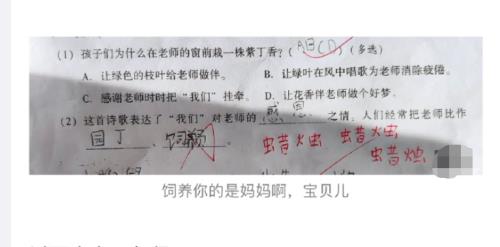 (1) 孩子们为什么在老师的窗前栽一株紫丁香?( ABCD )(多选)
A. 让绿色的枝叶给老师做伴。 B. 让绿叶在风中唱歌为老师消除疲倦。
C. 感谢老师时时把“我们”挂牵。 D. 让花香伴老师做个好梦。
(2) 这首诗歌表达了“我们”对老师的 感恩 之情。人们经常把老师比作
园丁 、 饲养 虫昔火虫 虫昔火虫
虫昔烛
饲养你的是妈妈啊，宝贝儿